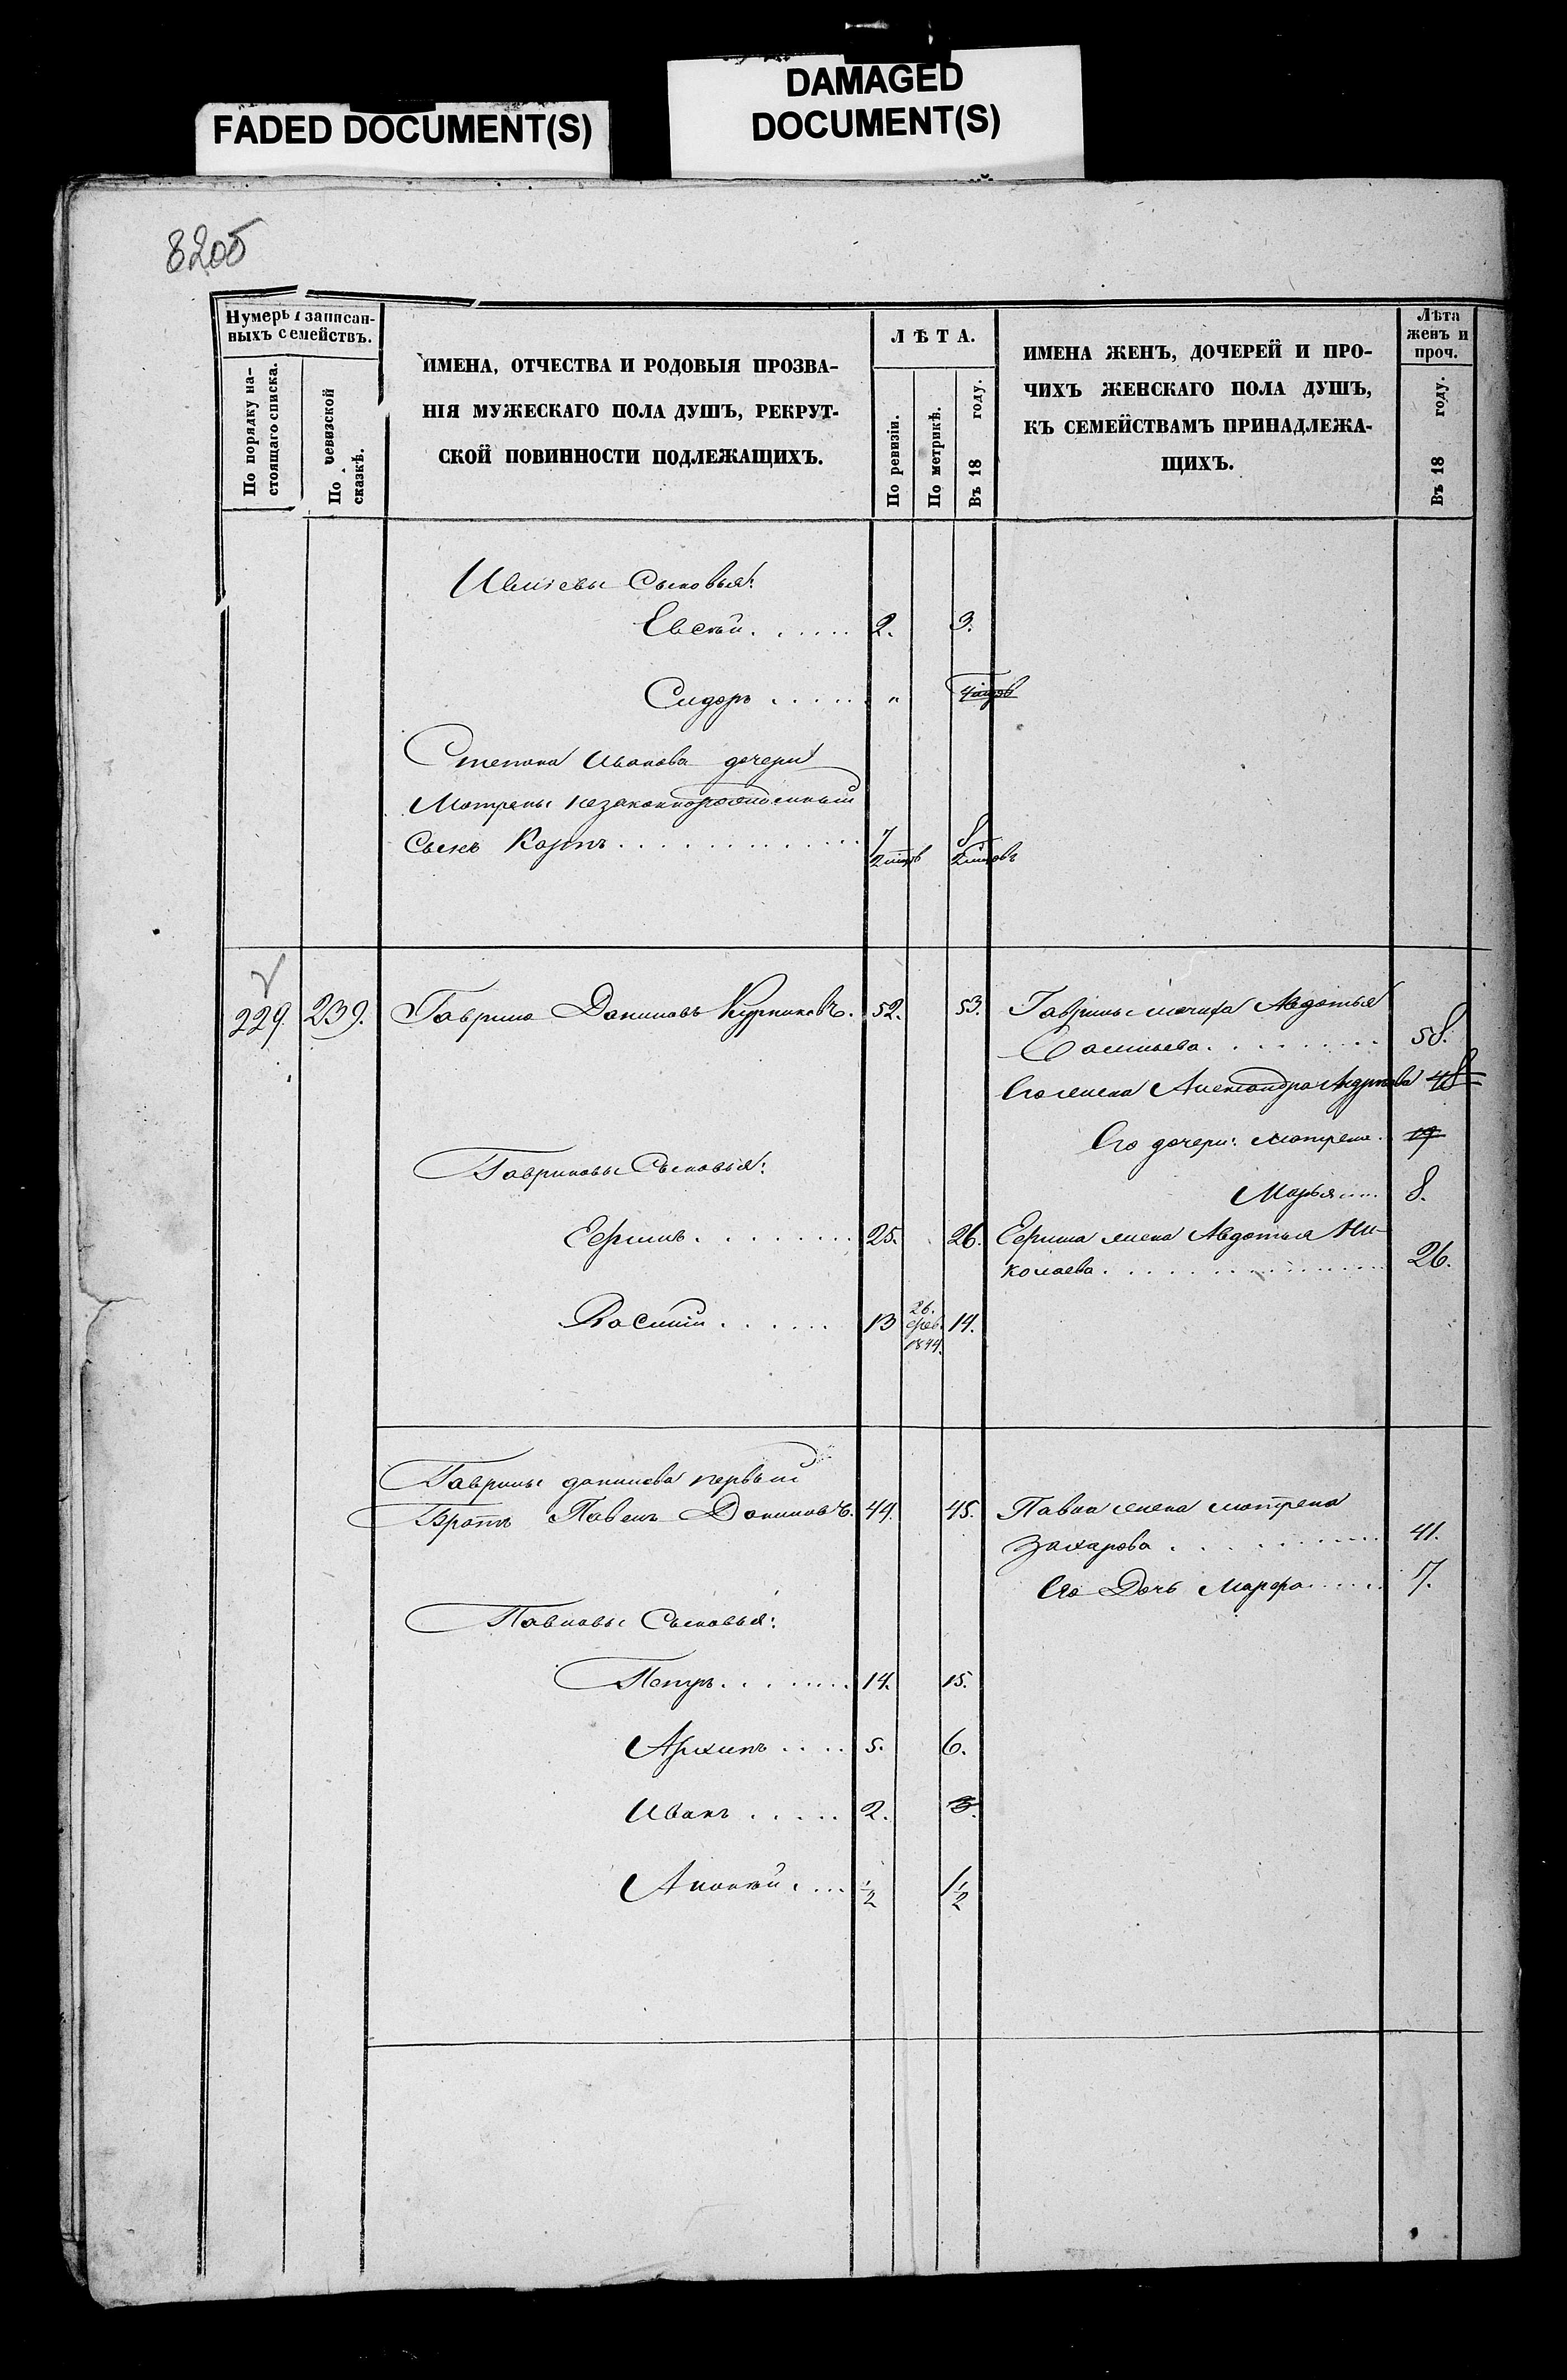 FADED DOCUMENT(S)
DAMAGED
DOCUMENT(S)
820б
Нумеръ записан-
ныхъ семействъ.
По порядку на-
стоящаго списка.
По ревизской
сказкѣ.
ИМЕНА, ОТЧЕСТВА И РОДОВЫЯ ПРОЗВА-
НІЯ МУЖЕСКАГО ПОЛА ДУШЪ, РЕКРУТ-
СКОЙ ПОВИННОСТИ ПОДЛЕЖАЩИХЪ.
ЛѢТА.
По ревизіи.
По метрикѣ.
Въ 18 году.
ИМЕНА ЖЕНЪ, ДОЧЕРЕЙ И ПРО-
ЧИХЪ ЖЕНСКАГО ПОЛА ДУШЪ,
КЪ СЕМЕЙСТВАМЪ ПРИНАДЛЕЖА-
ЩИХЪ.
Лѣта
женъ и
проч.
Въ 18 году.
Сыновья:
Евсѣй 2. 3.
Сидоръ "
Степана Иванова дочери
Матрены незаконнорожденный
Сынъ Карпъ 7 8
229. 239. Гаврило Даниловъ 52. 53. Гаврилы мачиха Авдотья
58.
Его жена Александра 48
Его дочери: Матрена 19
Гавриловы Сыновья:
Марья 8.
Ефимъ 25. 26. Ефима жена Авдотья Ни-
колаева 26.
Василій 13 26. фев. 1844. 14.
Гаврилы данилова первый
Братъ Павелъ Даниловъ. 44. 45. Павла жена матрена
Захарова 41.
Его Дочь Марфа 7.
Павловы Сыновья:
Петръ 14. 15.
Архипъ 5. 6.
Иванъ 2. 3.
½ 1½